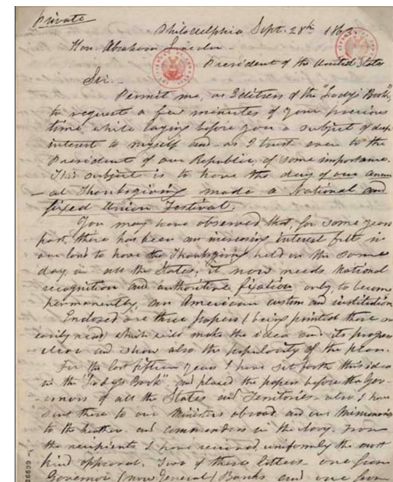 Private
Philadelphia, Sept. 28th 1863.
Hon. Abraham Lincoln -
President of the United States
Sir. -
Permit me, as Editress of the "Lady's Book",
to request a few minutes of your precious
time, while laying before you a subject of deep
interest to myself and as I trust even to the
President of our Republic, of some importance.
This subject is to have the day of our annu-
al Thanksgiving made a National and
fixed Union Festival.
You may have observed that, for some years
past, there has been an increasing interest felt in
our land to have the Thanksgiving held on the same
day, in all the States; it now needs National
recognition and authoritive fixation, only, to become
permanently, an American custom and institution.
Enclosed are three papers (being printed these are
easily read) which will make the idea and its progress
clear and show also the popularity of the plan.
For the last fifteen years I have set forth this idea
in the "Lady's Book", and placed the papers before the Gov-
ernors of all the States and Territories - also I have
sent these to our Ministers abroad, and our Missionaries
to the heathen - and commanders in the Navy. From
the recipients I have received, uniformly the most
kind approval. Two of these letters, one from
Governor (now General) Banks and one from